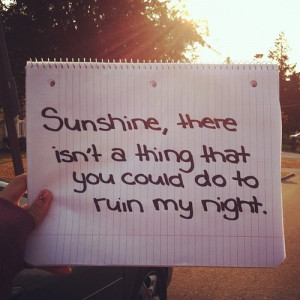 Sunshine, there
isn't a thing that
you could do to
ruin my night.